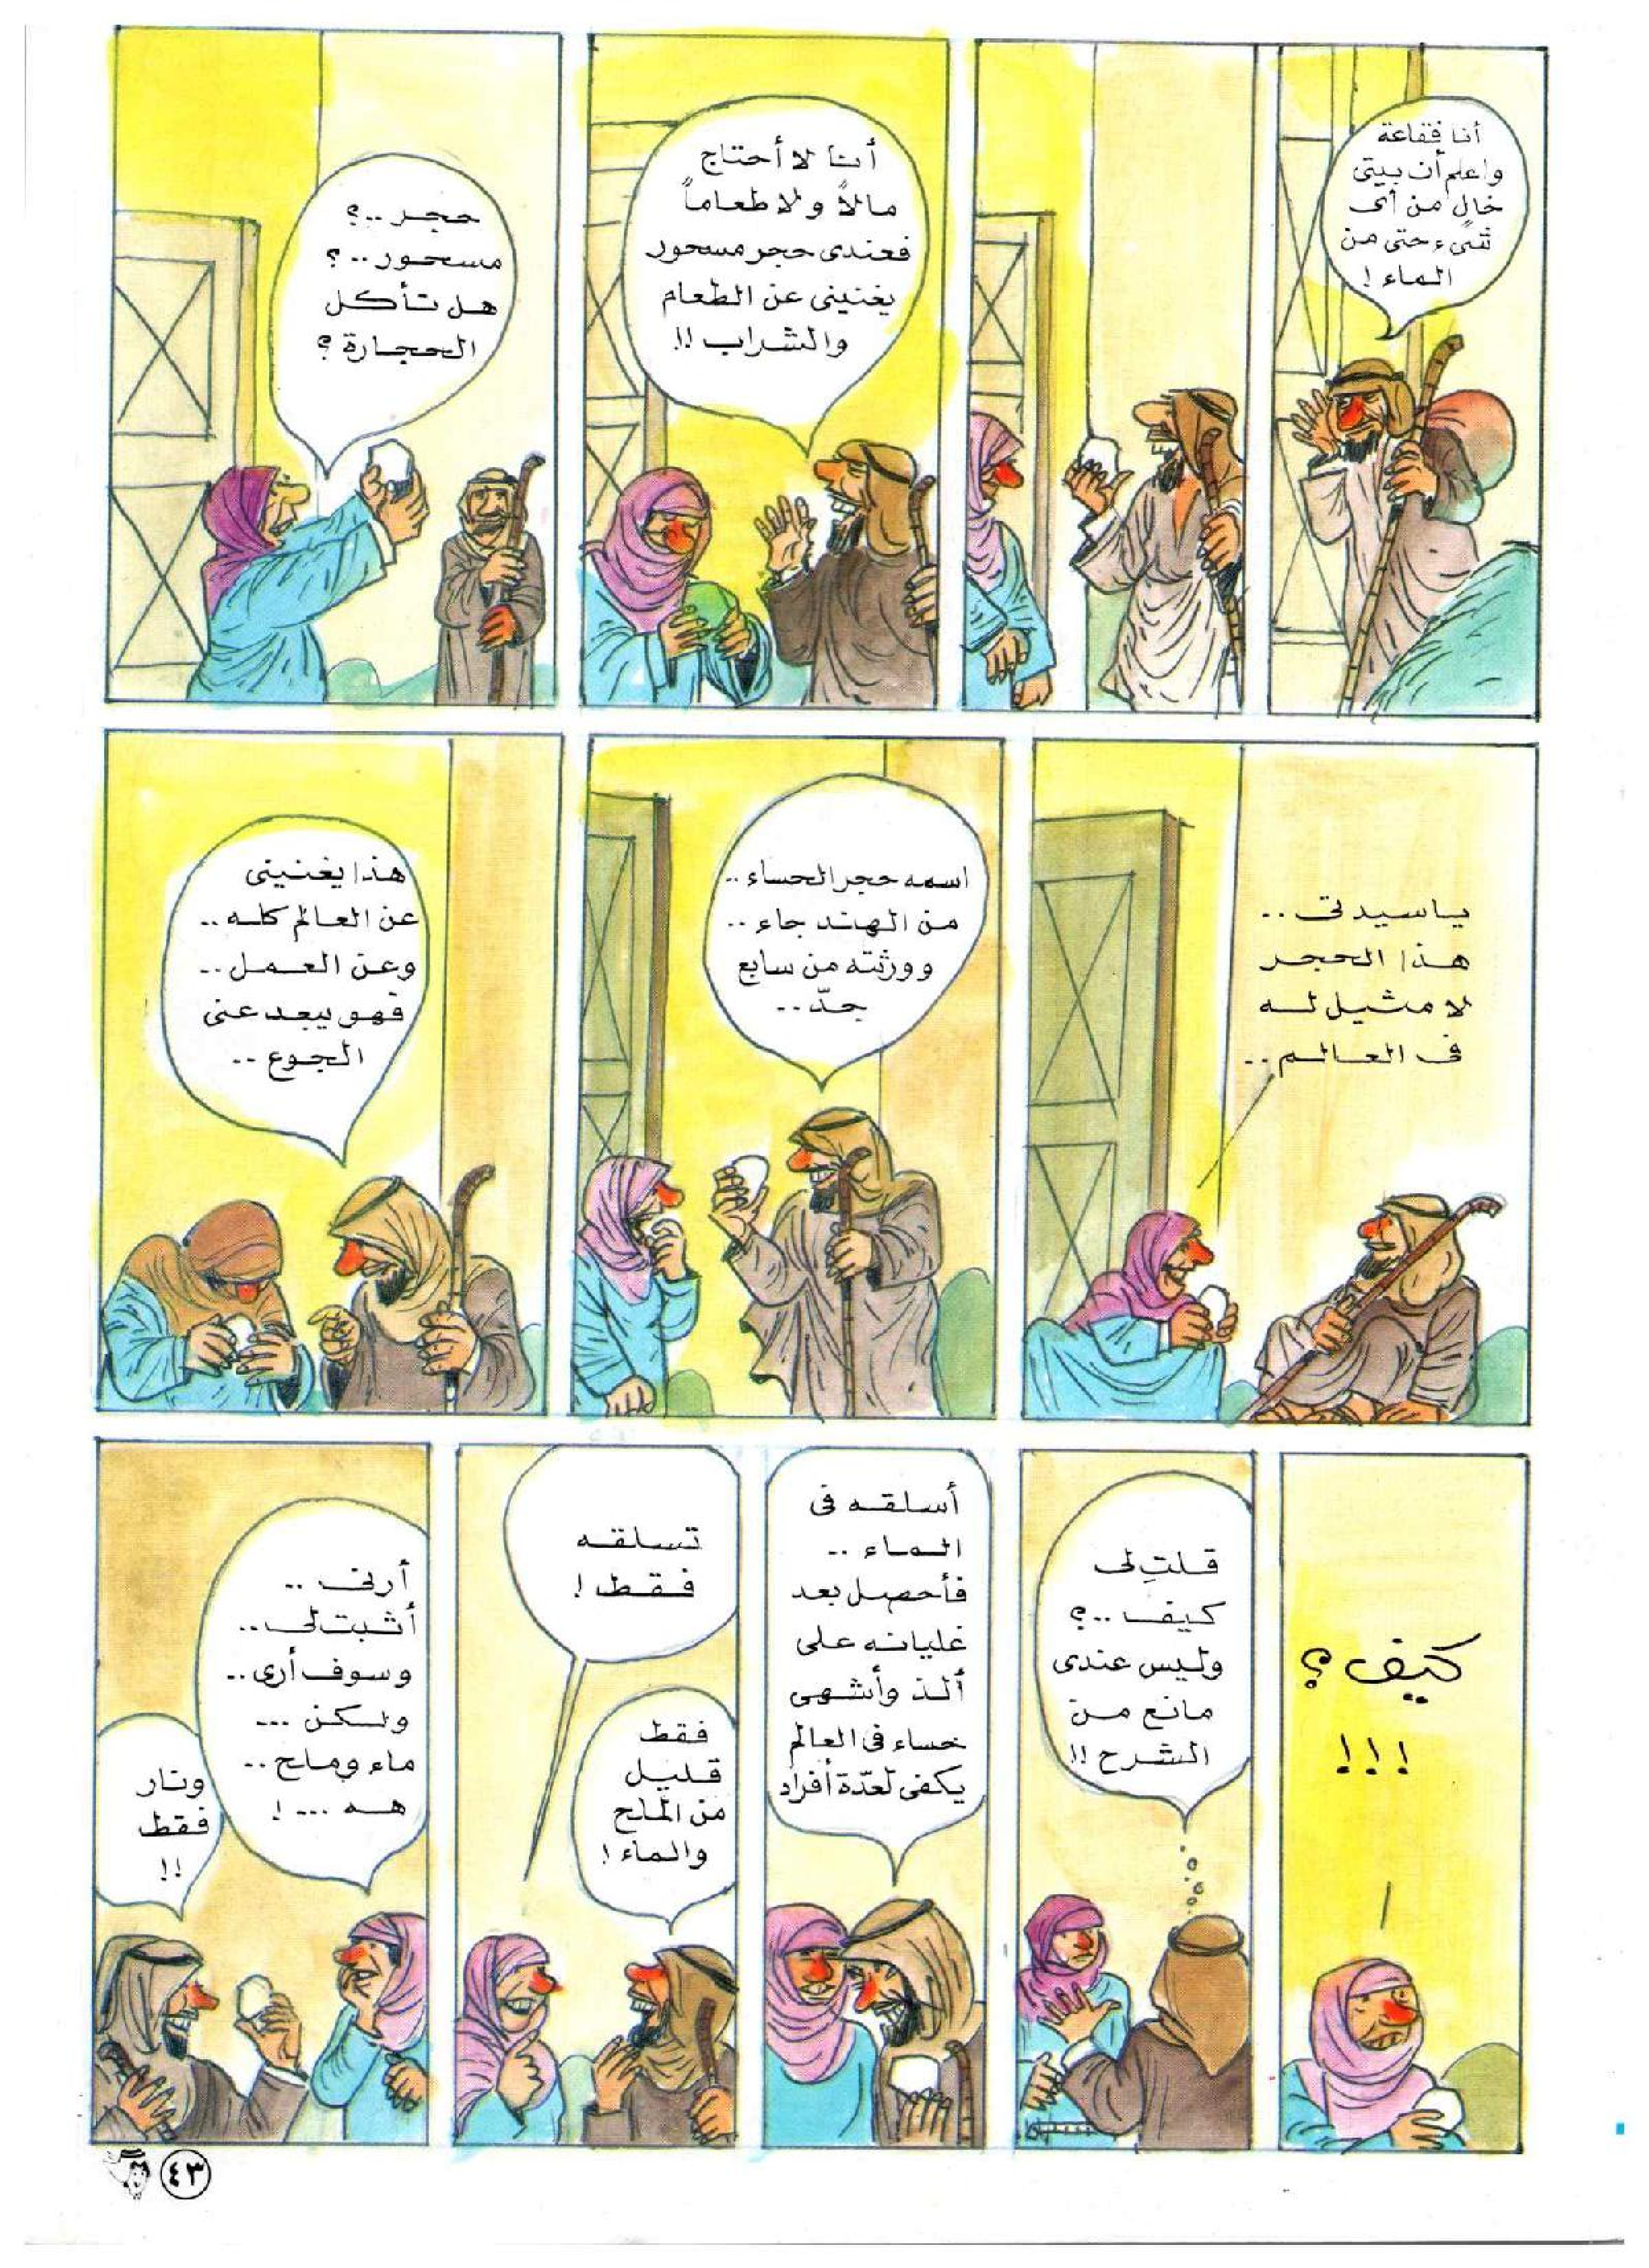 أنا فقاعة
واعلم أن بيتى
خالٍ من أى
شىء حتى من
الماء !
أنا لا أحتاج
مالاً ولا طعاماً
فعندى حجر مسحور
يغنينى عن الطعام
والشراب !!
حجر ..؟
مسحور ..؟
هل تأكل
الحجارة ؟
ياسيدتى ..
هذا الحجر
لا مثيل له
فى العالم ..
اسمه حجر الحساء ..
من الهند جاء ..
وورثته من سابع
جدّ ..
هذا يغنينى
عن العالم كله ..
وعن العمل ..
فهو يبعد عنى
الجوع ..
كيف ؟
!!!
قلتِ لى
كيف ..؟
وليس عندى
مانع من
الشرح !!
أسلقه فى
الماء ..
فأحصل بعد
غليانه على
ألذ وأشهى
حساء فى العالم
يكفى لعدّة أفراد
تسلقه
فقط !
فقط
قليل
من الملح
والماء !
أرنى ..
أثبت لى ..
وسوف أرى ..
ولكن ...
ماء وملح ..
هه ... !
ونار
فقط
!!
٤٣